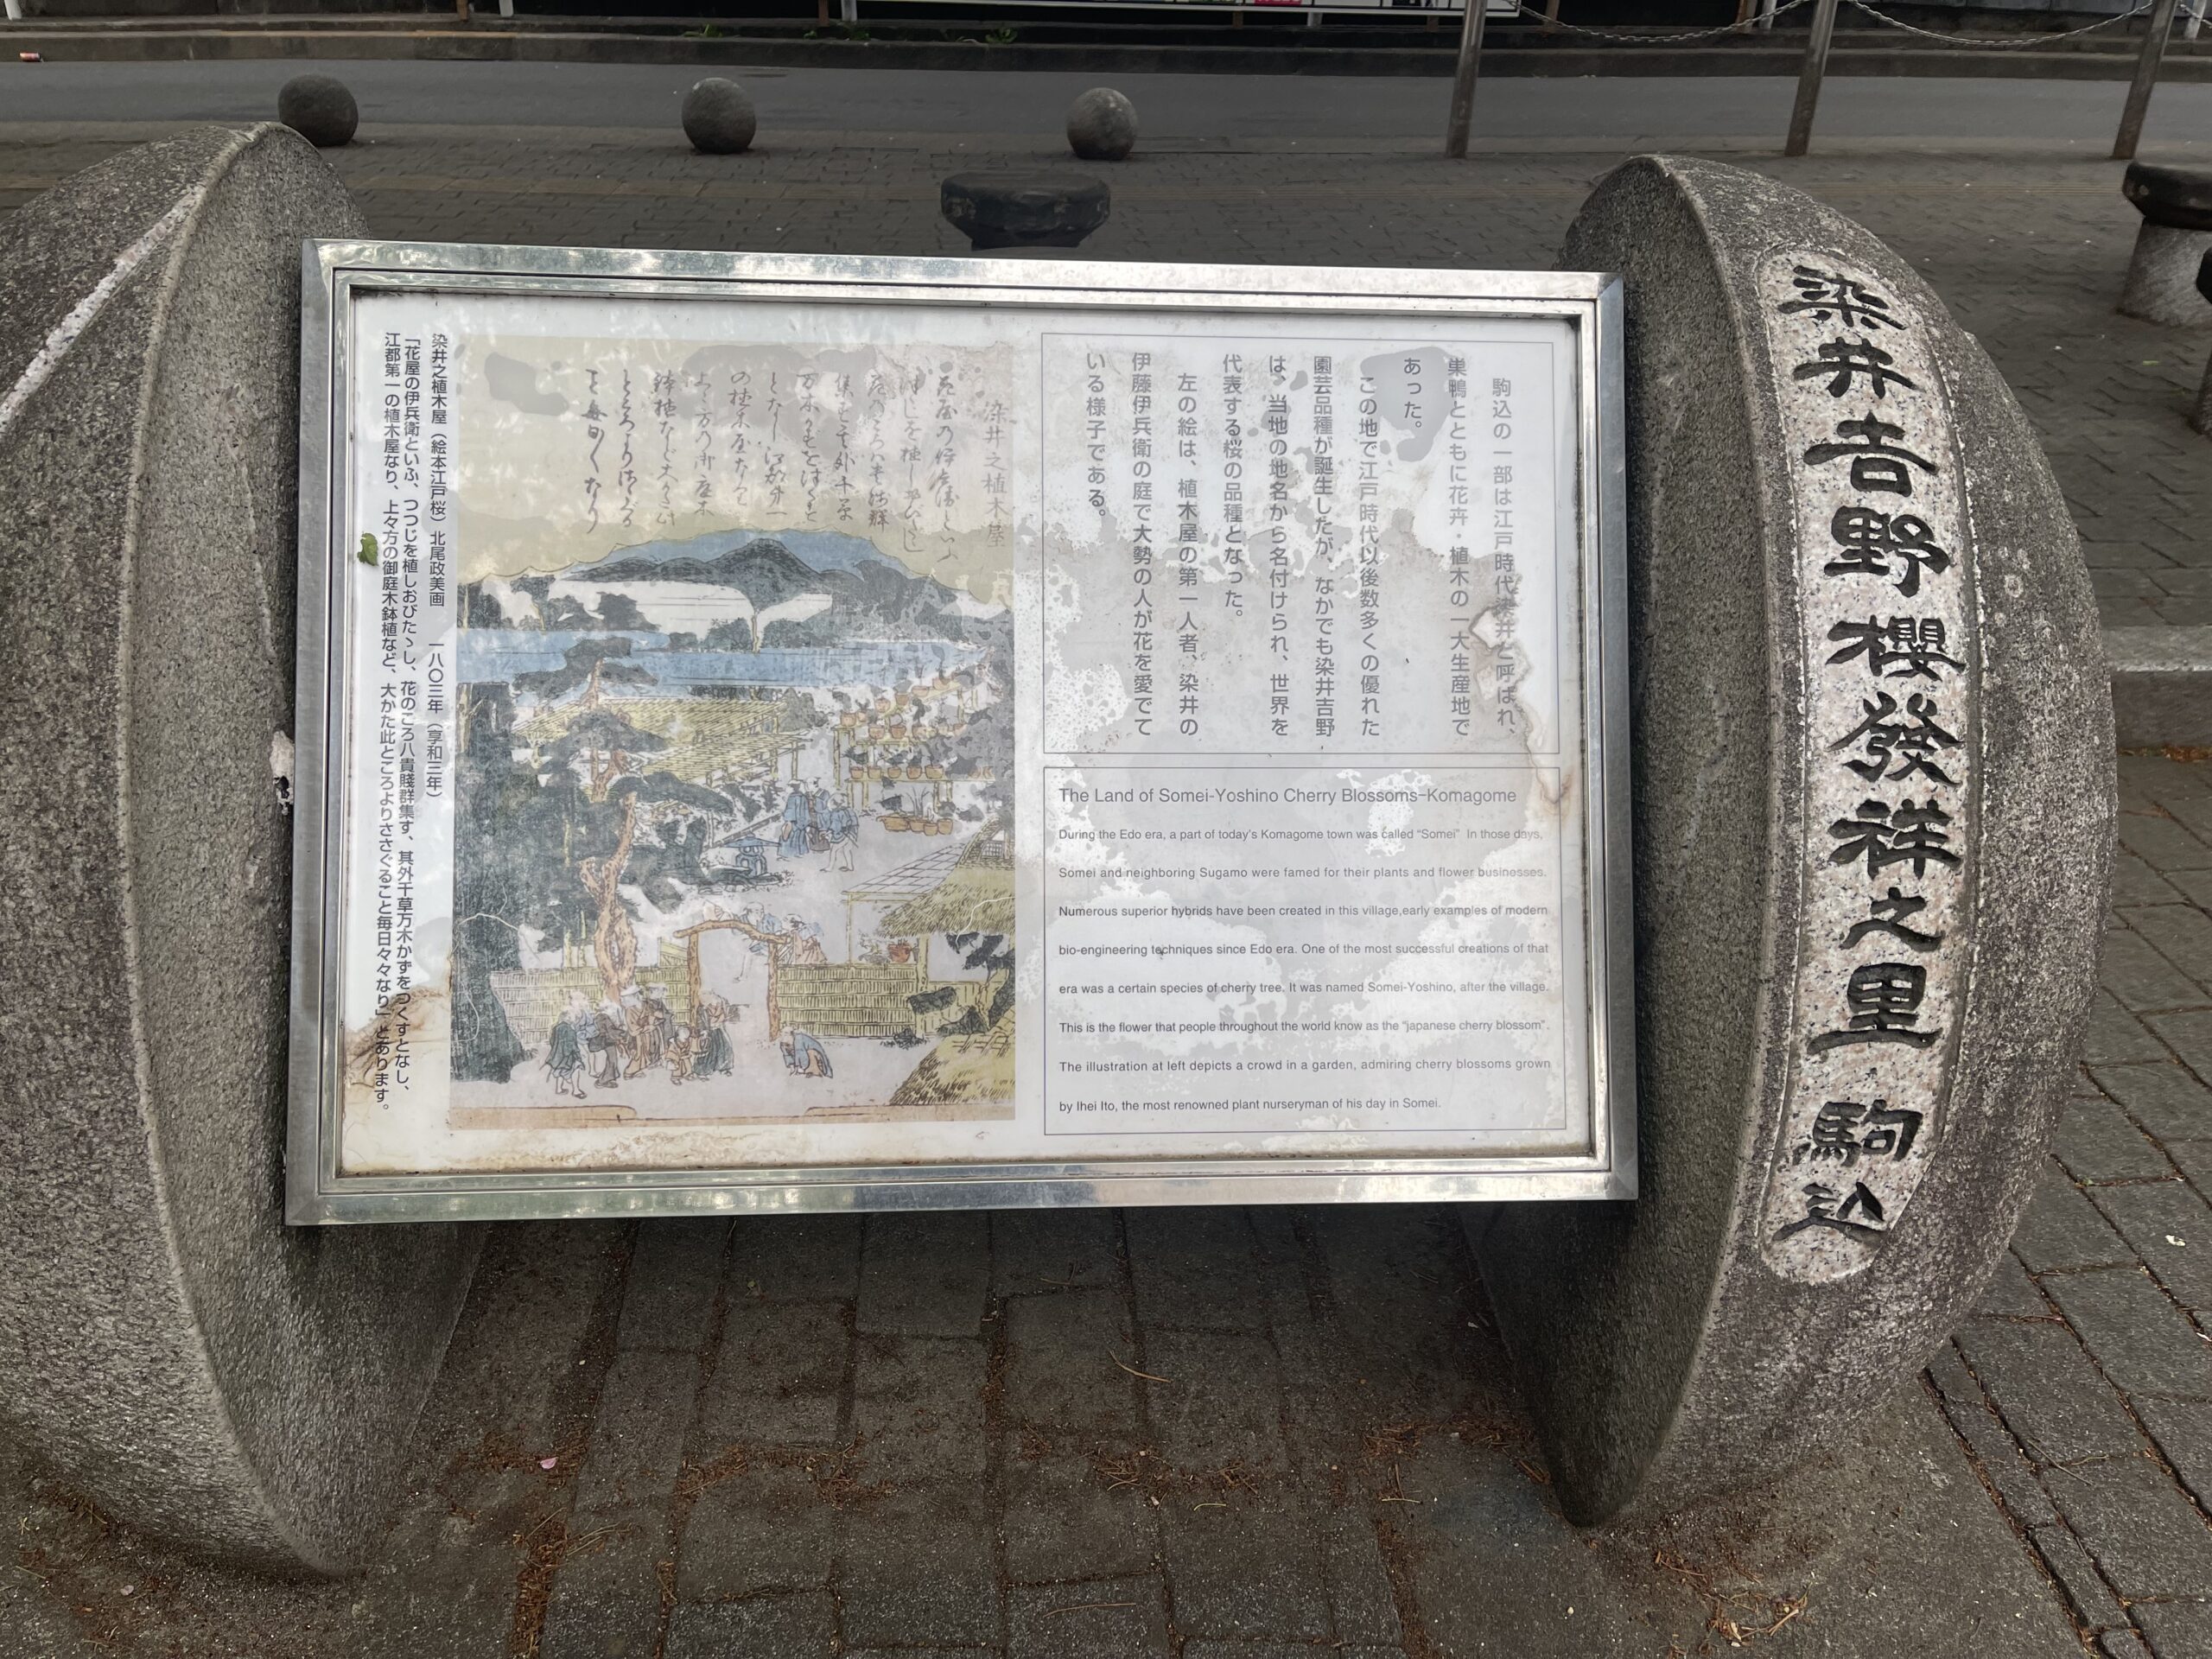 染井吉野櫻發祥之里 駒込
駒込の一部は江戸時代染井と呼ばれ、
巣鴨とともに花卉・植木の一大生産地で
あった。
この地で江戸時代以後数多くの優れた
園芸品種が誕生したが、なかでも染井吉野
は、当地の地名から名付けられ、世界を
代表する桜の品種となった。
左の絵は、植木屋の第一人者、染井の
伊藤伊兵衛の庭で大勢の人が花を愛でて
いる様子である。
The Land of Somei-Yoshino Cherry Blossoms-Komagome
During the Edo era, a part of today's Komagome town was called "Somei" In those days,
Somei and neighboring Sugamo were famed for their plants and flower businesses.
Numerous superior hybrids have been created in this village,early examples of modern
bio-engineering techniques since Edo era. One of the most successful creations of that
era was a certain species of cherry tree. It was named Somei-Yoshino, after the village.
This is the flower that people throughout the world know as the "japanese cherry blossom".
The illustration at left depicts a crowd in a garden, admiring cherry blossoms grown
by Ihei Ito, the most renowned plant nurseryman of his day in Somei.
染井之植木屋
花屋の伊兵衛といふ
染井之植木屋（絵本江戸桜）北尾政美画　一八〇三年（享和三年）
「花屋の伊兵衛といふ、つつじを植しおびたゝし、花のころ八貴賤群集す、其外千草万木かずをつくすとなし、
江都第一の植木屋なり、上々方の御庭木鉢植など、大かた此ところよりささぐること毎日々々なり」とあります。